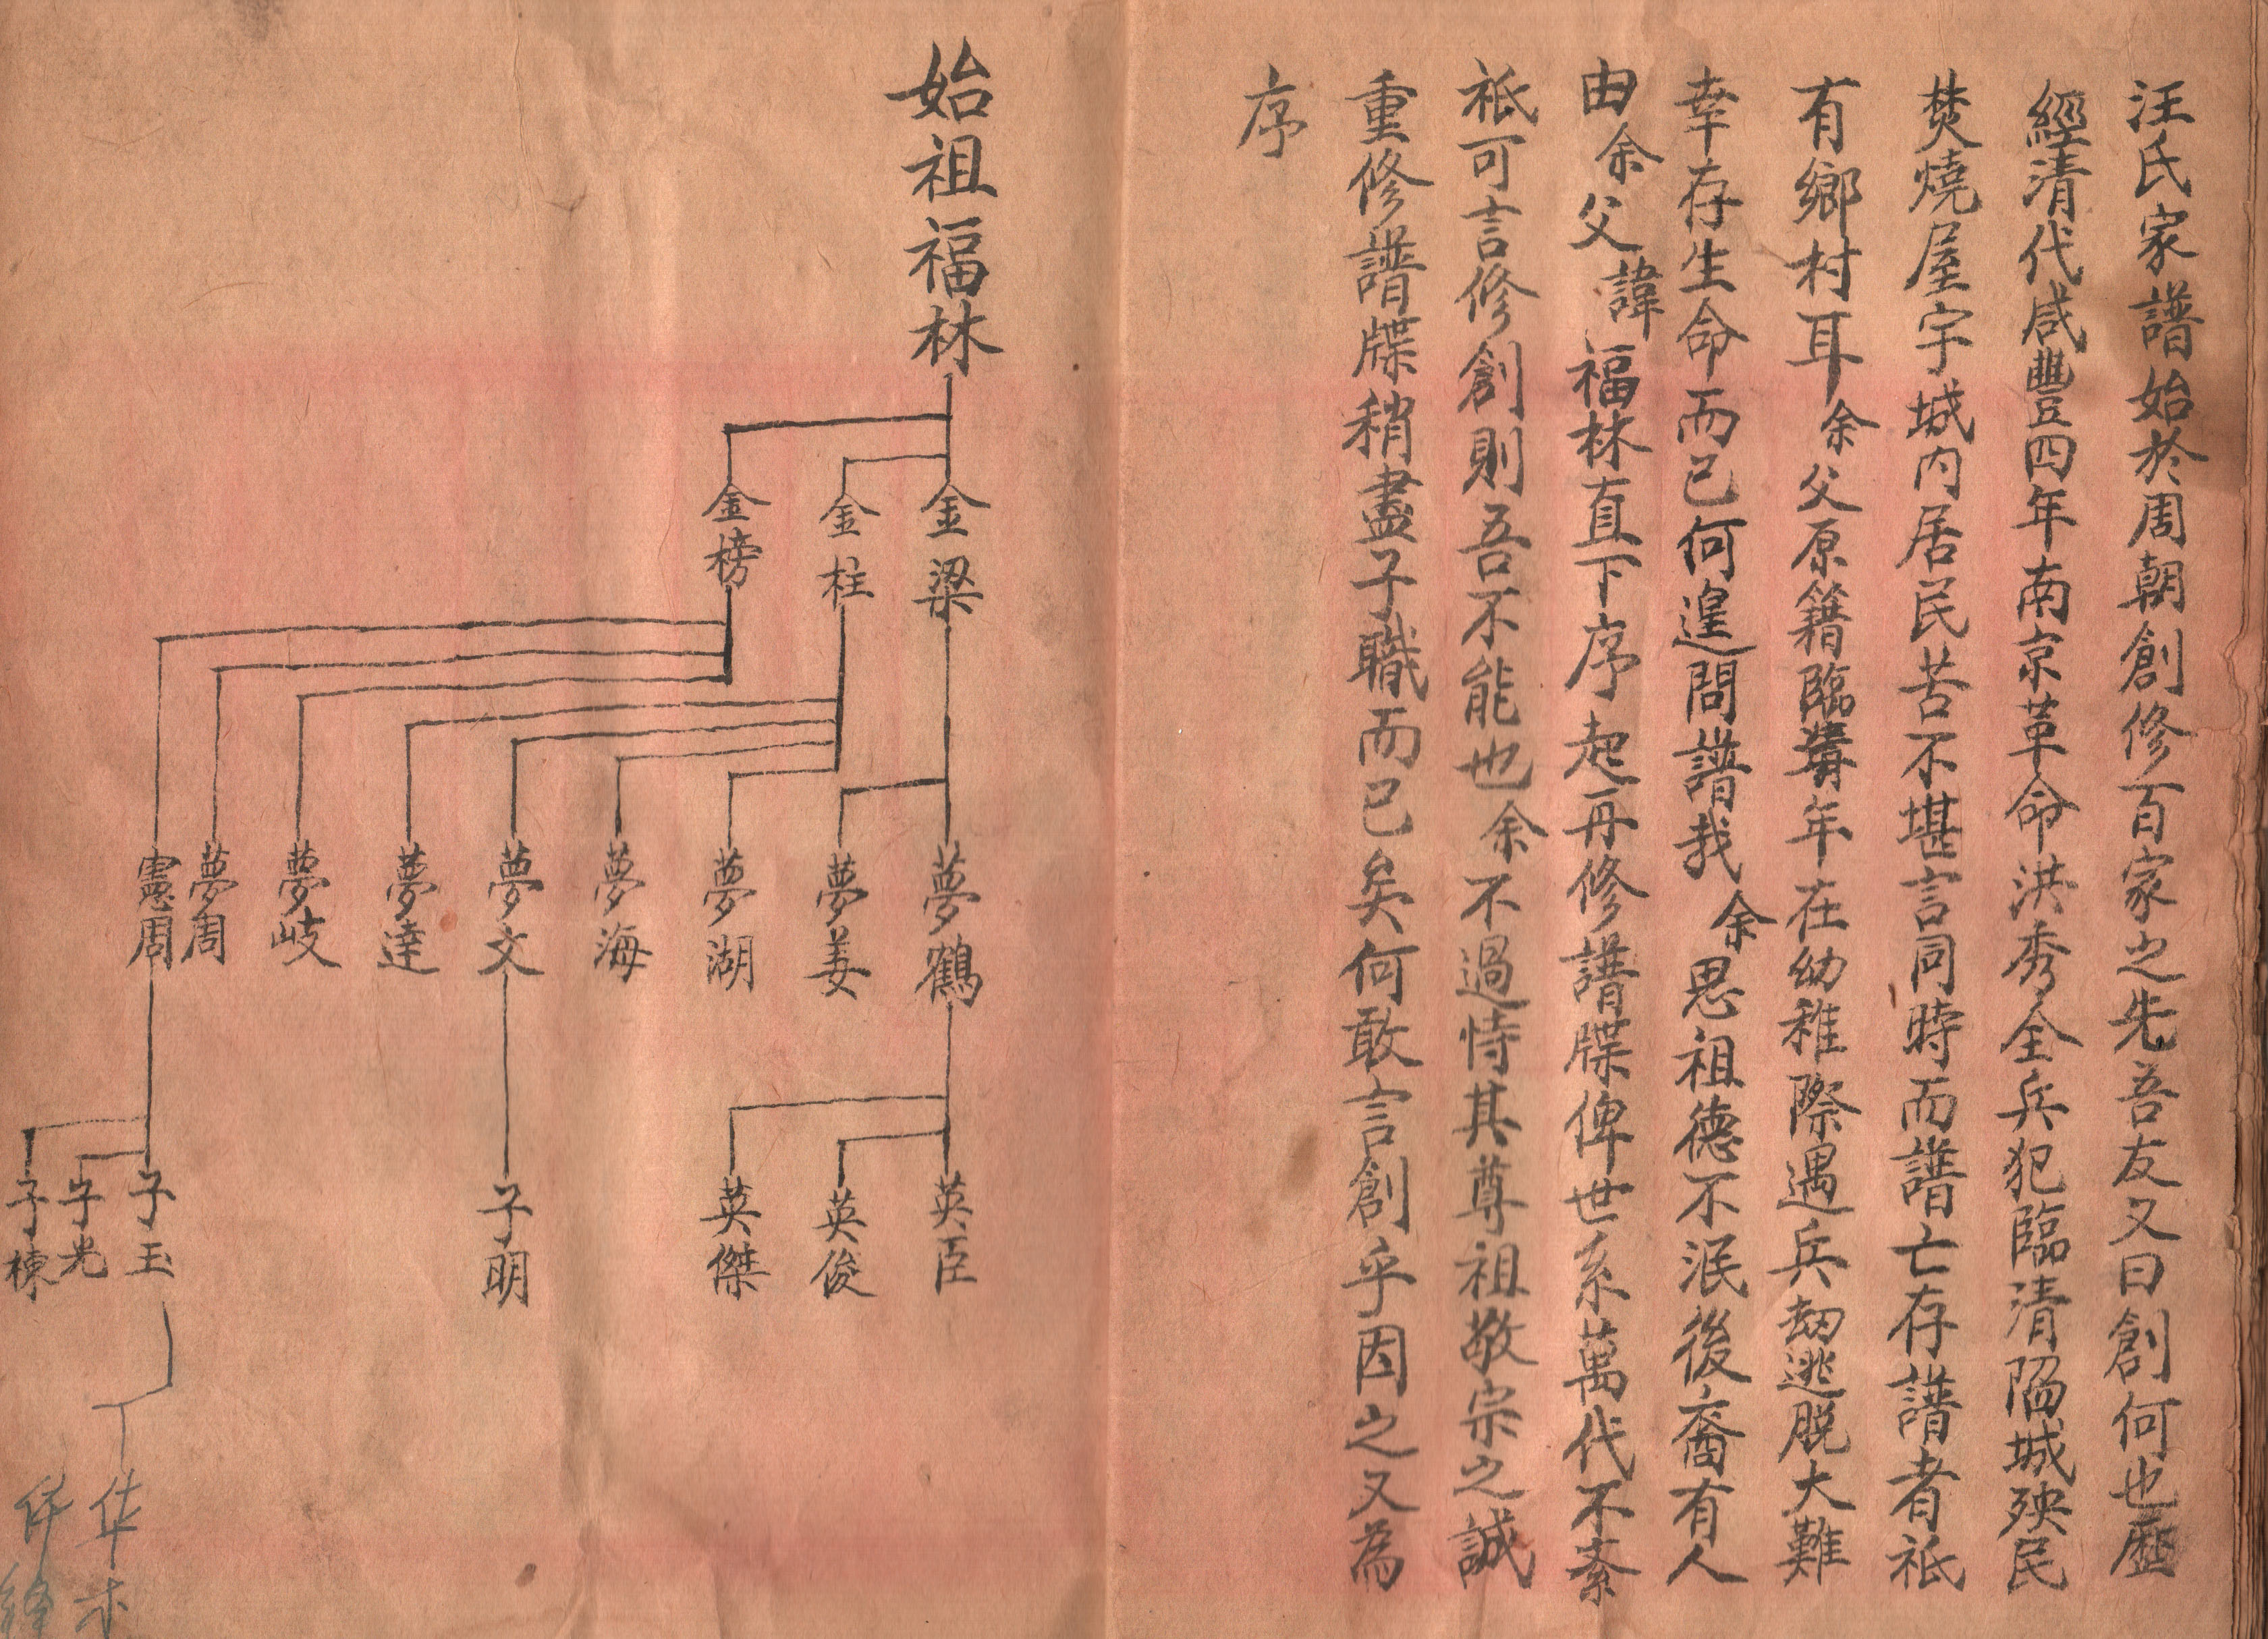 汪氏家譜始於周朝創修百家之先吾友又曰創何也歷
經清代咸豐四年南京革命洪秀全兵犯臨清陷城殃民
焚燒屋宇城內居民苦不堪言同時而譜亡存譜者祇
有鄉村耳余父原籍臨清年在幼稚際遇兵劫逃脫大難
幸存生命而已何遑問譜哉余思祖德不泯後裔有人
由余父諱福林直下序起再修譜牒俾世系萬代不紊
祇可言修創則吾不能也余不過恃其尊祖敬宗之誠
重修譜牒稍盡子職而已矣何敢言創乎因之又為
序
始祖福林
金梁
金柱
金榜
夢鶴
夢姜
夢湖
夢海
夢文
夢達
夢岐
夢周
憲周
英臣
英俊
英傑
子明
子玉
子光
子棟